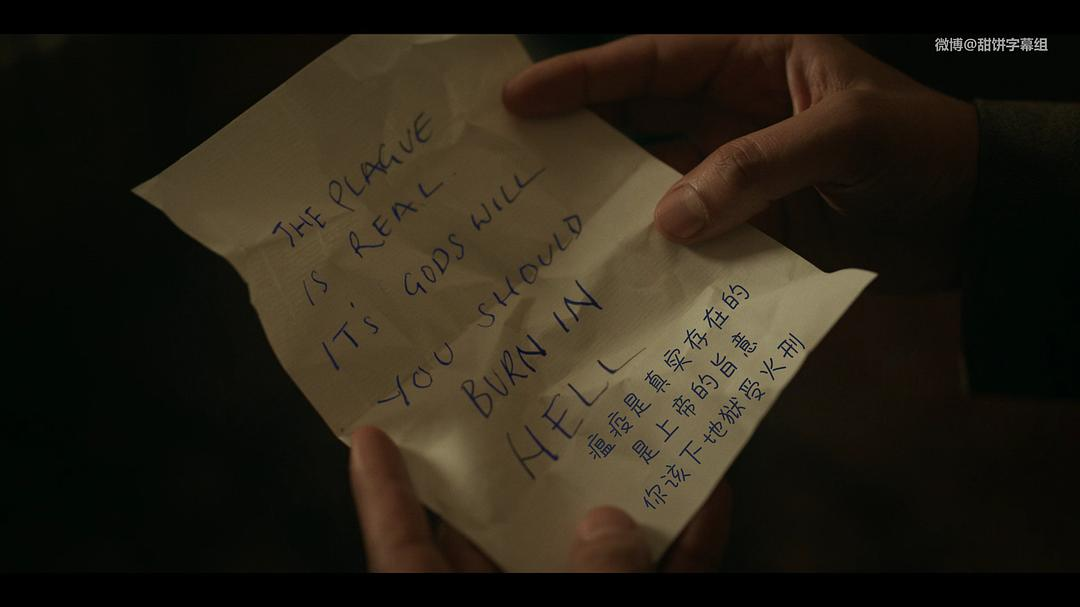 微博@甜饼字幕组
THE PLAGUE
IS REAL.
IT'S GODS WILL
YOU SHOULD
BURN IN
HELL
瘟疫是真实存在的
是上帝的旨意
你该下地狱受火刑